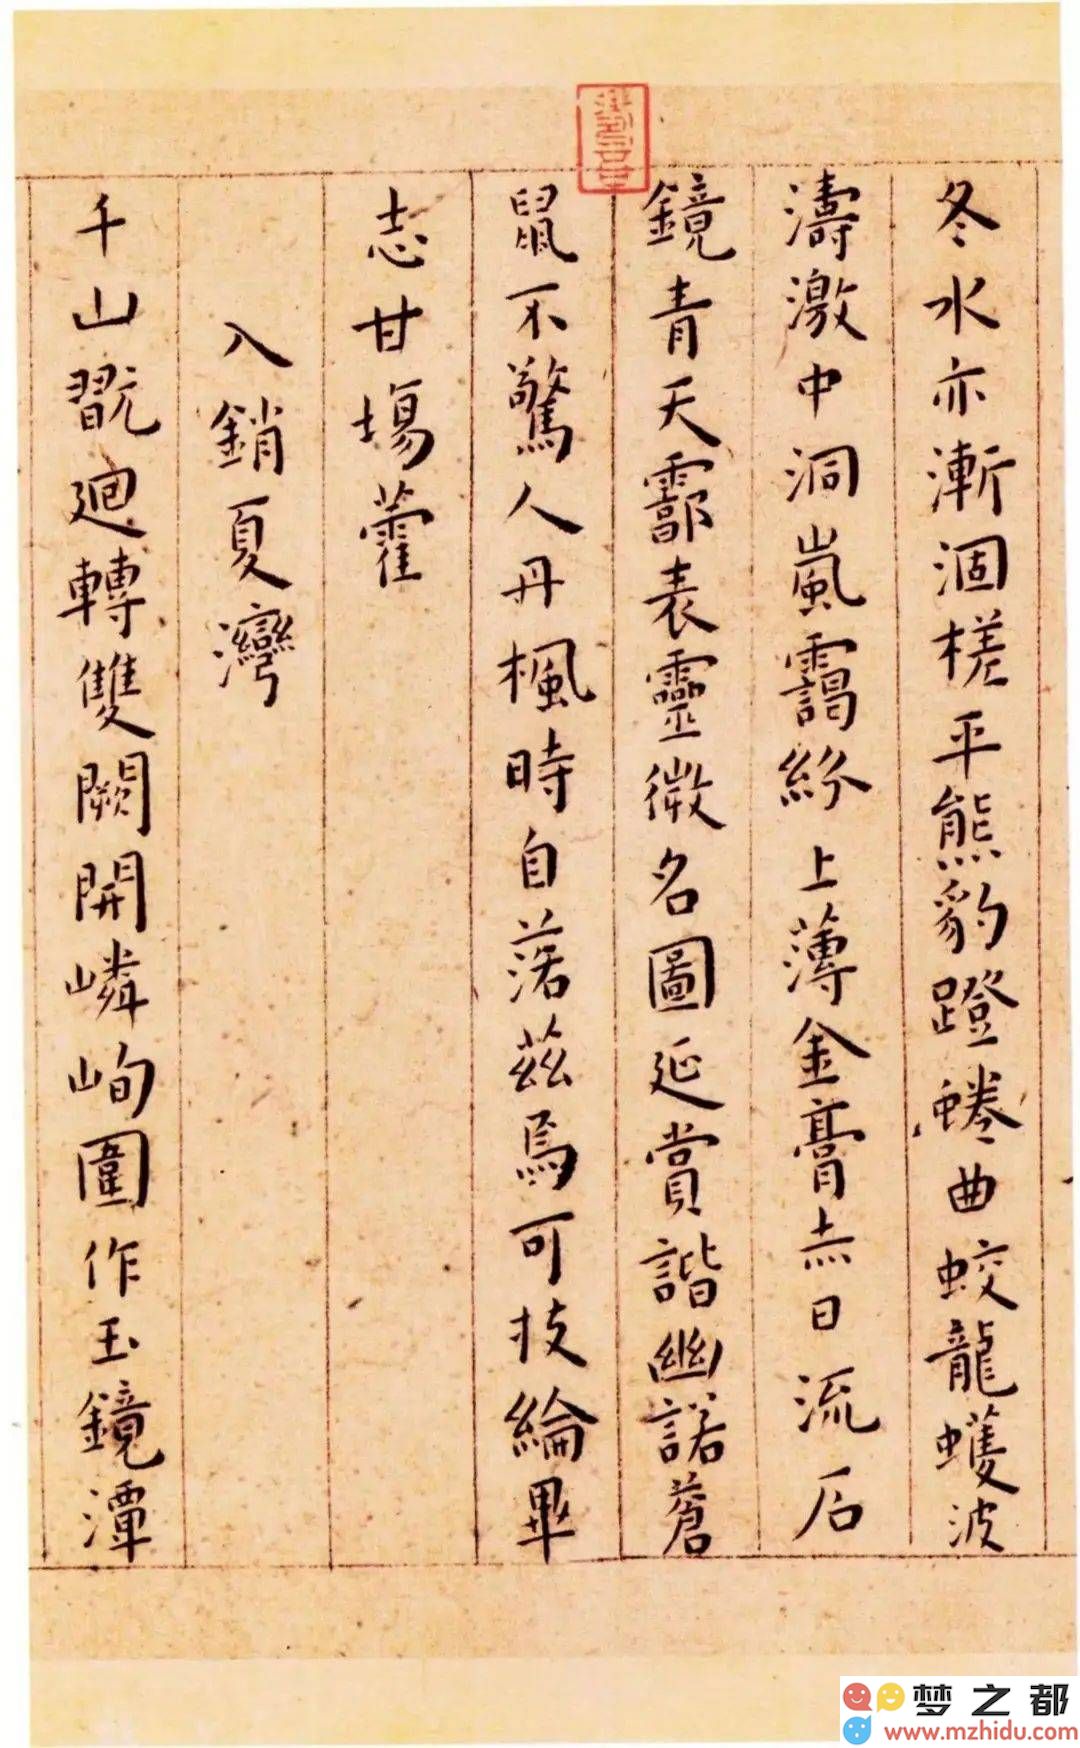 冬水亦漸涸槎平熊豹蹬蜷曲蛟龍蠖波
濤激中洞嵐靄紛上薄金膏赤日流石
鏡青天鄠表靈微名圖延賞諧幽諾蒼
鼠不驚人丹楓時自落茲焉可技綸畢
志甘場藿
入銷夏灣
千山翫迴轉雙闕開嶙峋圍作玉鏡潭
梦之都
www.mzhidu.com